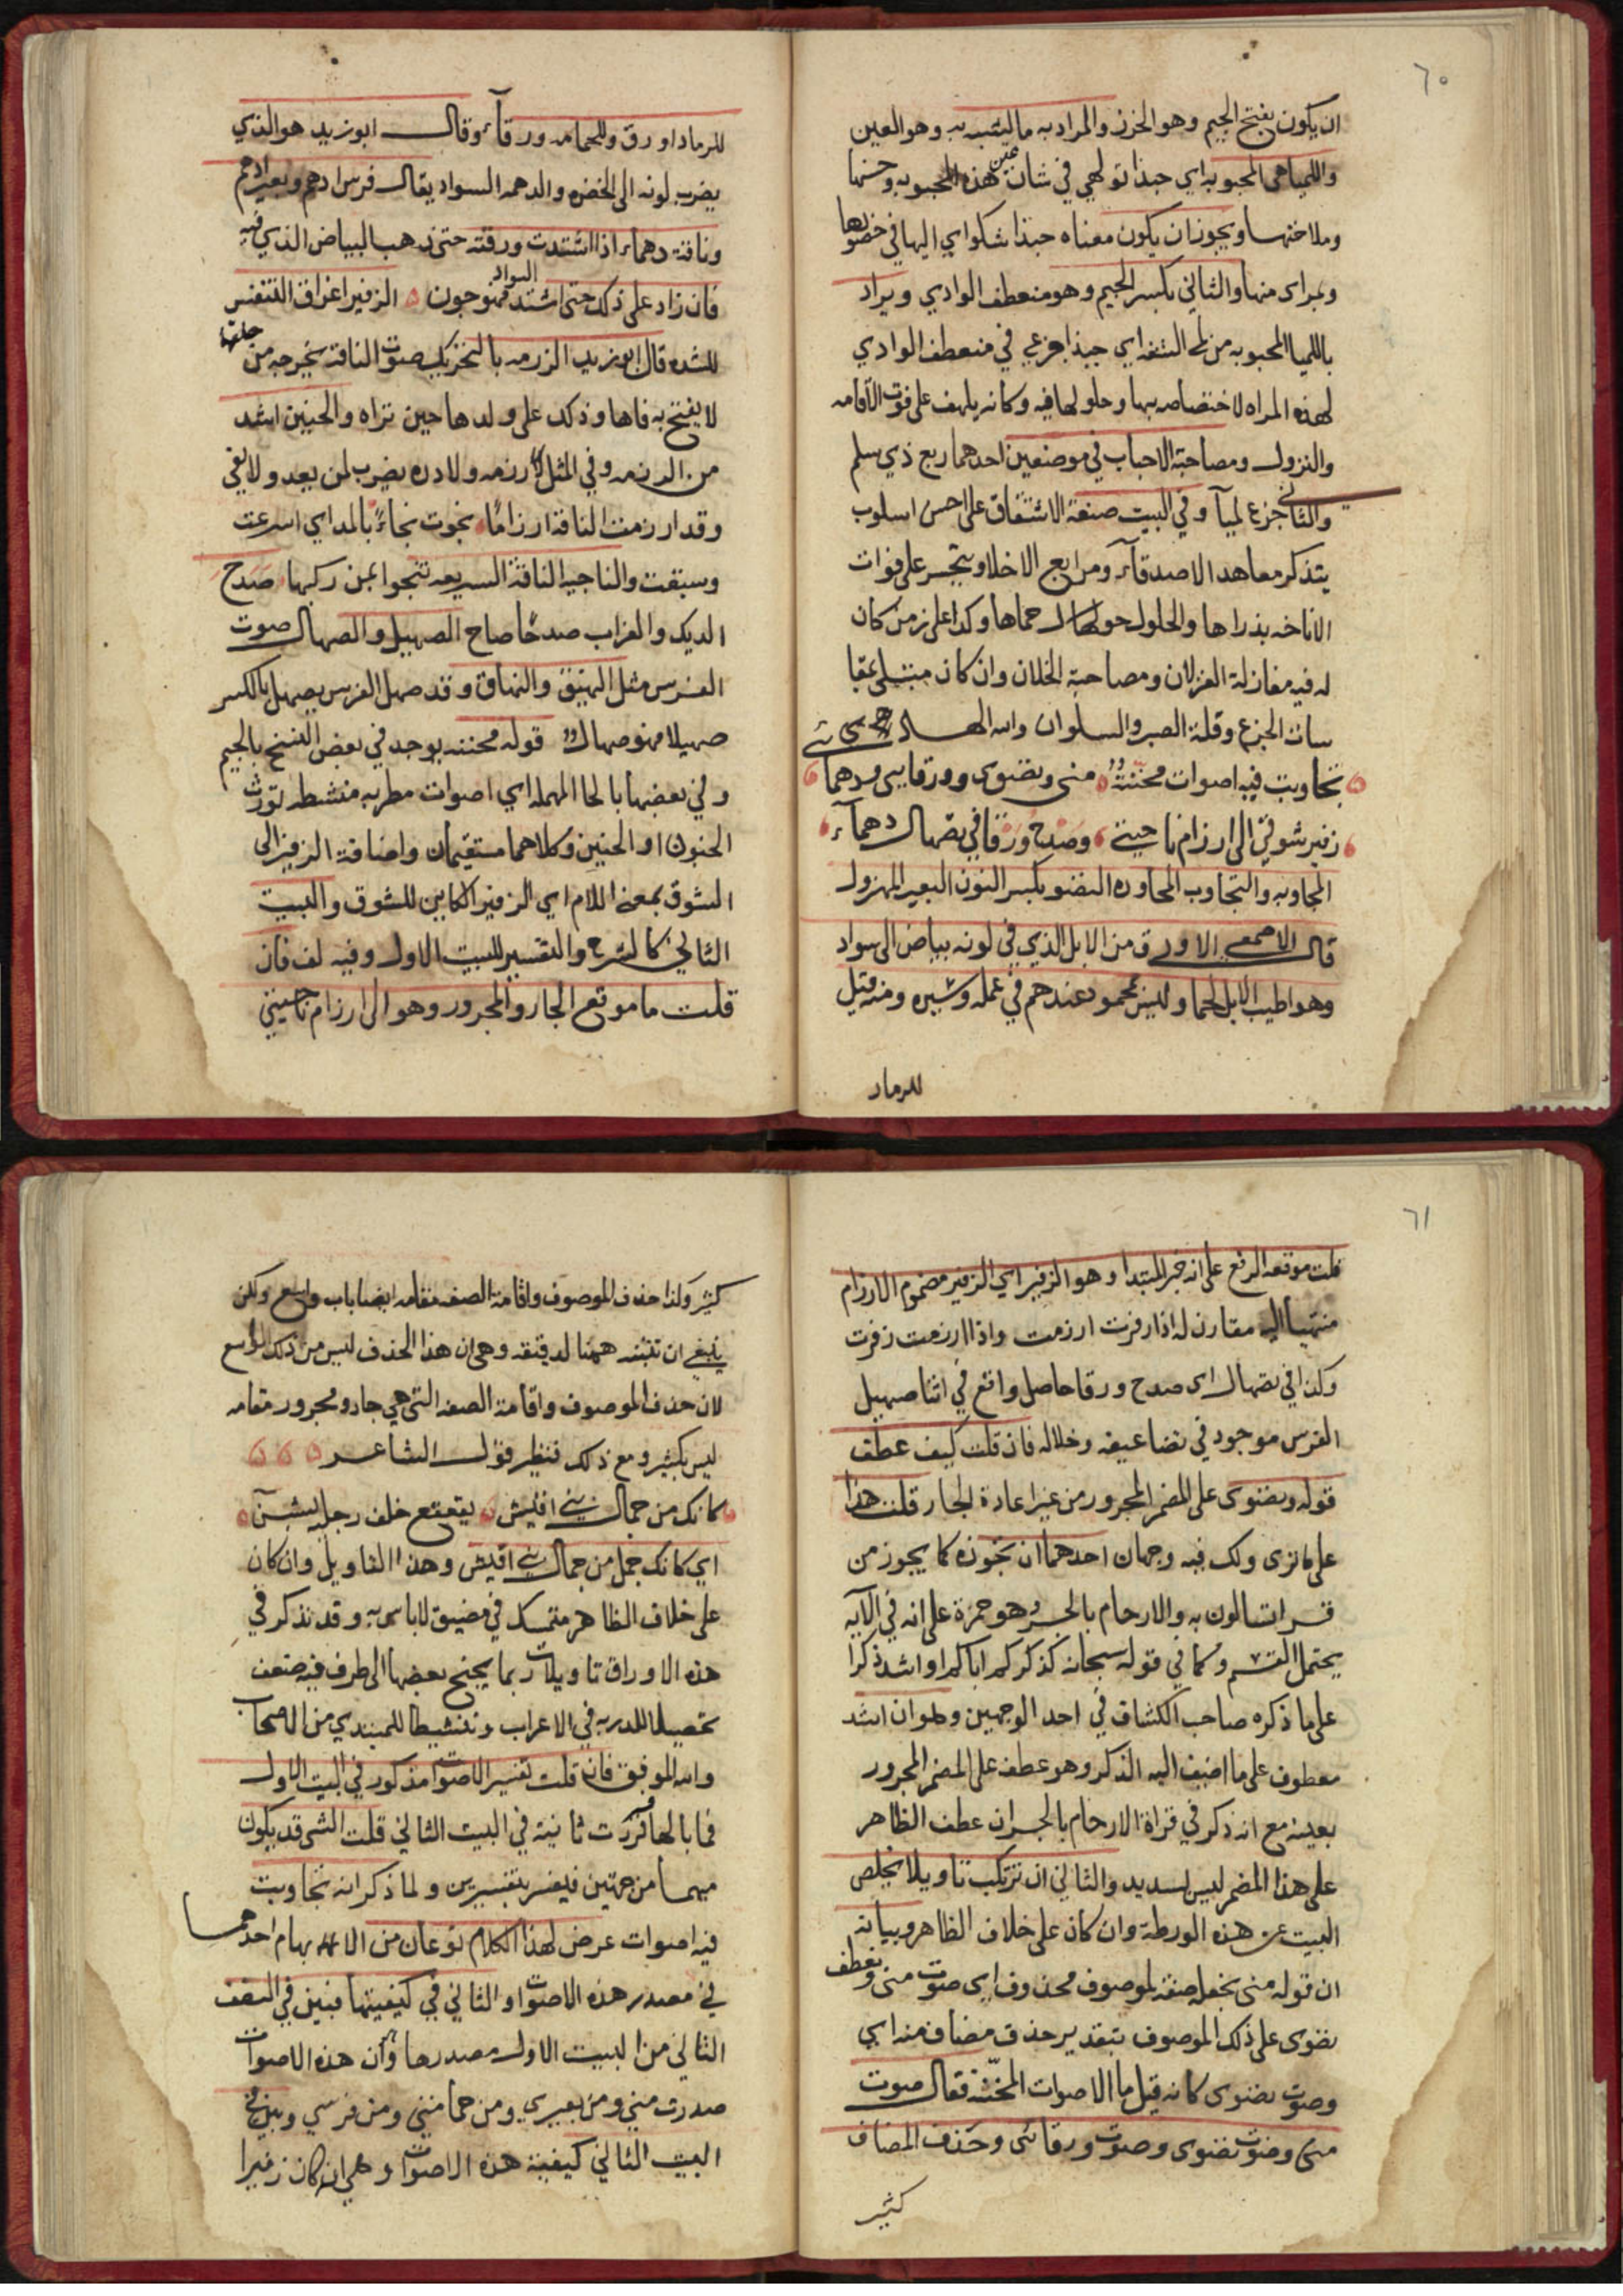 ٦٠
ان يكون بفتح الجيم وهو الخرز والمراد به ما يشبه به وهو العين
واللمياهى المحبوبه اي حبذا تولهي في شان عين هذه المحبوبه وحسنها
وملاحتها ويجوز ان يكون معناه حبذا شكواي اليها في حضورها
وبمراى منها والثاني بكسر الجيم وهو منعطف الوادي ويراد
باللميا المحبوبه من لمى الشفه اي حبذا جزعي في منعطف الوادي
لهذه المراه لاختصاصه بها وحلولها فيه وكانه يلهف على فوت الاقامه
والنزول ومصاحبة الاحباب في موضعين احدهما ربع ذي سلم
والثاني جزع لميآ وفي البيت صنعة الاشتقاق على احسن اسلوب
يتذكر معاهد الاصدقآء ومرابع الاخلا ويتحسر على فوات
الاناخه بذراها والحلول حول حماها وكذا على زمن كان
له فيه مغازلة الغزلان ومصاحبة الخلان وان كان مبتلى بمقا
سات الجزع وقلة الصبر والسلوان والله الهادي
تجاوبت فيه اصوات محننة منى ونضوى وورقايى ودهمآ
زفير شوقي الى ارزام ناجيتى وصدح ورقا في تصهال دهمآء
المجاوبه والتجاوب المحاوره النضو بكسر النون البعير المهزول
قال الاصمعي الاورق من الابل الذي في لونه بياض الى سواد
وهو اطيب الابل لحما وليس بمحمود عندهم في عمله وسيره ومنه قيل
للرماد
للرماد اورق وللحمامه ورقآء وقال ابو زيد هو الذي
يضرب لونه الى الخضره والدهمه السواد يقال فرس ادهم وبعير ادهم
وناقة دهماء اذا اشتدت ورقته حتى ذهب البياض الذي فيه
فان زاد على ذلك حتى اشتد السواد فهو جون الزفير اغراق التنفس
للشده قال ابو زيد الرزمه بالتحريك صوت الناقة تخرجه من حلقها
لا يفتح به فاها وذلك على ولدها حين تراه والحنين اشد
من الرزمه وفي المثل لا رزمه ولا دره يضرب لمن يعد ولا يفي
وقد ارزمت الناقة ارزاما نجوت نجاء بالمد اي اسرعت
وسبقت والناجيه الناقة السريعه تنجوا بمن ركبها صدح
الديك والغراب صدحا صاح الصهيل والصهال صوت
الفرس مثل النهيق والنهاق وقد صهل الفرس يصهل بالكسر
صهيلا فهو صهال قوله محننه يوجد في بعض النسخ بالجيم
وفي بعضها بالحا المهمله اي اصوات مطربه منشطه تورث
الجنون او الحنين وكلاهما مستقيمان واضافة الزفير الى
الشوق بمعنى اللام اي الزفير الكاين للشوق والبيت
الثاني كالشرح والتفسير للبيت الاول وفيه لف فان
قلت ما موقع الجار والمجرور وهو الى ارزام ناجيتي
٦١
قلت موقعه الرفع على انه خبر المبتدا وهو الزفير اي الزفير مضموم الارزام
منتهيا اليه مقارن له اذا زفرت ارزمت واذا ارزمت زفرت
وكذا في تصهال اى صدح ورقا حاصل واقع في اثنا صهيل
الفرس موجود في تضاعيفه وخلاله فان قلت كيف عطف
قوله ونضوى على المضمر المجرور من غير اعادة الجار قلت هذا
على ما ترى ولك فيه وجهان احدهما ان تجوزه كما يجوز من
قرا تسالون به والارحام بالجر وهو حمزة على انه في الآيه
يحتمل القسم وكما في قوله سبحانه كذكركم اباكم او اشد ذكرا
على ما ذكره صاحب الكشاف في احد الوجهين وهو ان اشد
معطوف على ما اضيف اليه الذكر وهو عطف على المضمر المجرور
بعينه مع انه ذكر في قراة الارحام بالجر ان عطف الظاهر
على هذا المضمر ليس لسديد والثاني ان ترتكب تاويلا يخلص
البيت عن هذه الورطة وان كان على خلاف الظاهر وبيانه
ان قوله منى بجعله صفة لموصوف محذوف اي صوت منى وتعطف
نضوى على ذلك الموصوف بتقدير حذف مضاف منه اي
وصوت نضوى كانه قيل ما الاصوات المحننة فقال صوت
منى وصوت نضوى وصوت ورقائى وحذف المضاف
كثير
كثير وكذا حذف الموصوف واقامة الصفه مقامه ايضا باب واسع ولكن
ينبغي ان تتنبه ههنا لدقيقه وهي ان هذا الحذف ليس من ذلك الواسع
لان حذف الموصوف واقامة الصفه التى هي جار ومجرور مقامه
ليس بكثير ومع ذلك فنظير قول الشاعر
كانك من جمال بني اقيش يقعقع خلف رجليه بشن
اي كانك جمل من جمال بني اقيش وهذا التاويل وان كان
على خلاف الظاهر متمسك في مضيق لا باس به وقد نذكر في
هذه الاوراق تاويلات ربما يجنح بعضها الى طرف فيه ضعف
تحصيلا للدربه في الاعراب وتنشيطا للمبتدي من الاصحاب
والله الموفق فان قلت تفسير الاصوات مذكور في البيت الاول
فما بالها كررت ثانية في البيت الثاني قلت الشى قد يكون
مبهما من جهتين فيفسر بتفسيرين ولما ذكر انه تجاوبت
فيه اصوات عرض لهذا الكلام نوعان من الابهام احدهما
في مصدر هذه الاصوات والثاني في كيفيتها فبين في النصف
الثاني من البيت الاول مصدرها وان هذه الاصوات
صدرت مني ومن بعيري ومن حمامتي ومن فرسي وبين في
البيت الثاني كيفية هذه الاصوات وهي انه كان زفيرا